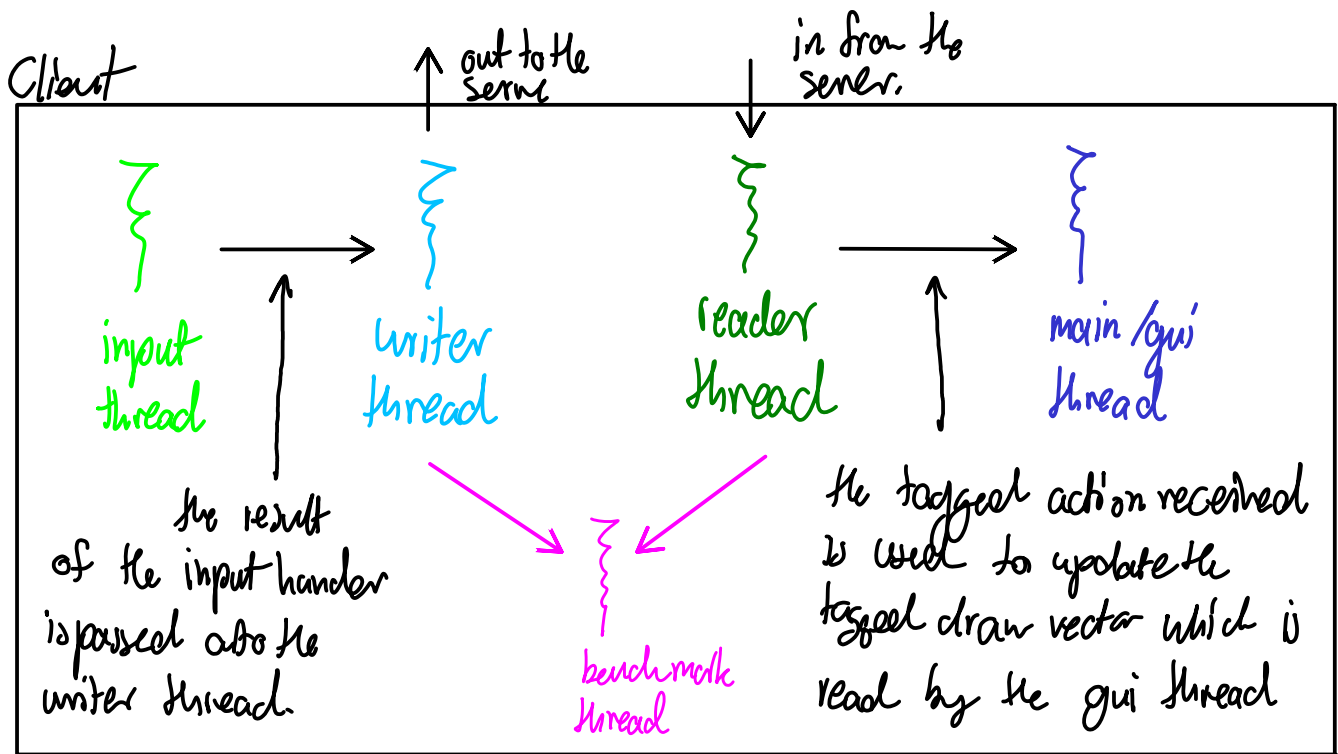 Client
out to the
server
in from the
server.
input
thread
writer
thread
reader
thread
main/gui
thread
the result
of the input hander
is passed onto the
writer thread.
benchmark
thread
the tagged action received
is used to update the
tagged draw vector which is
read by the gui thread